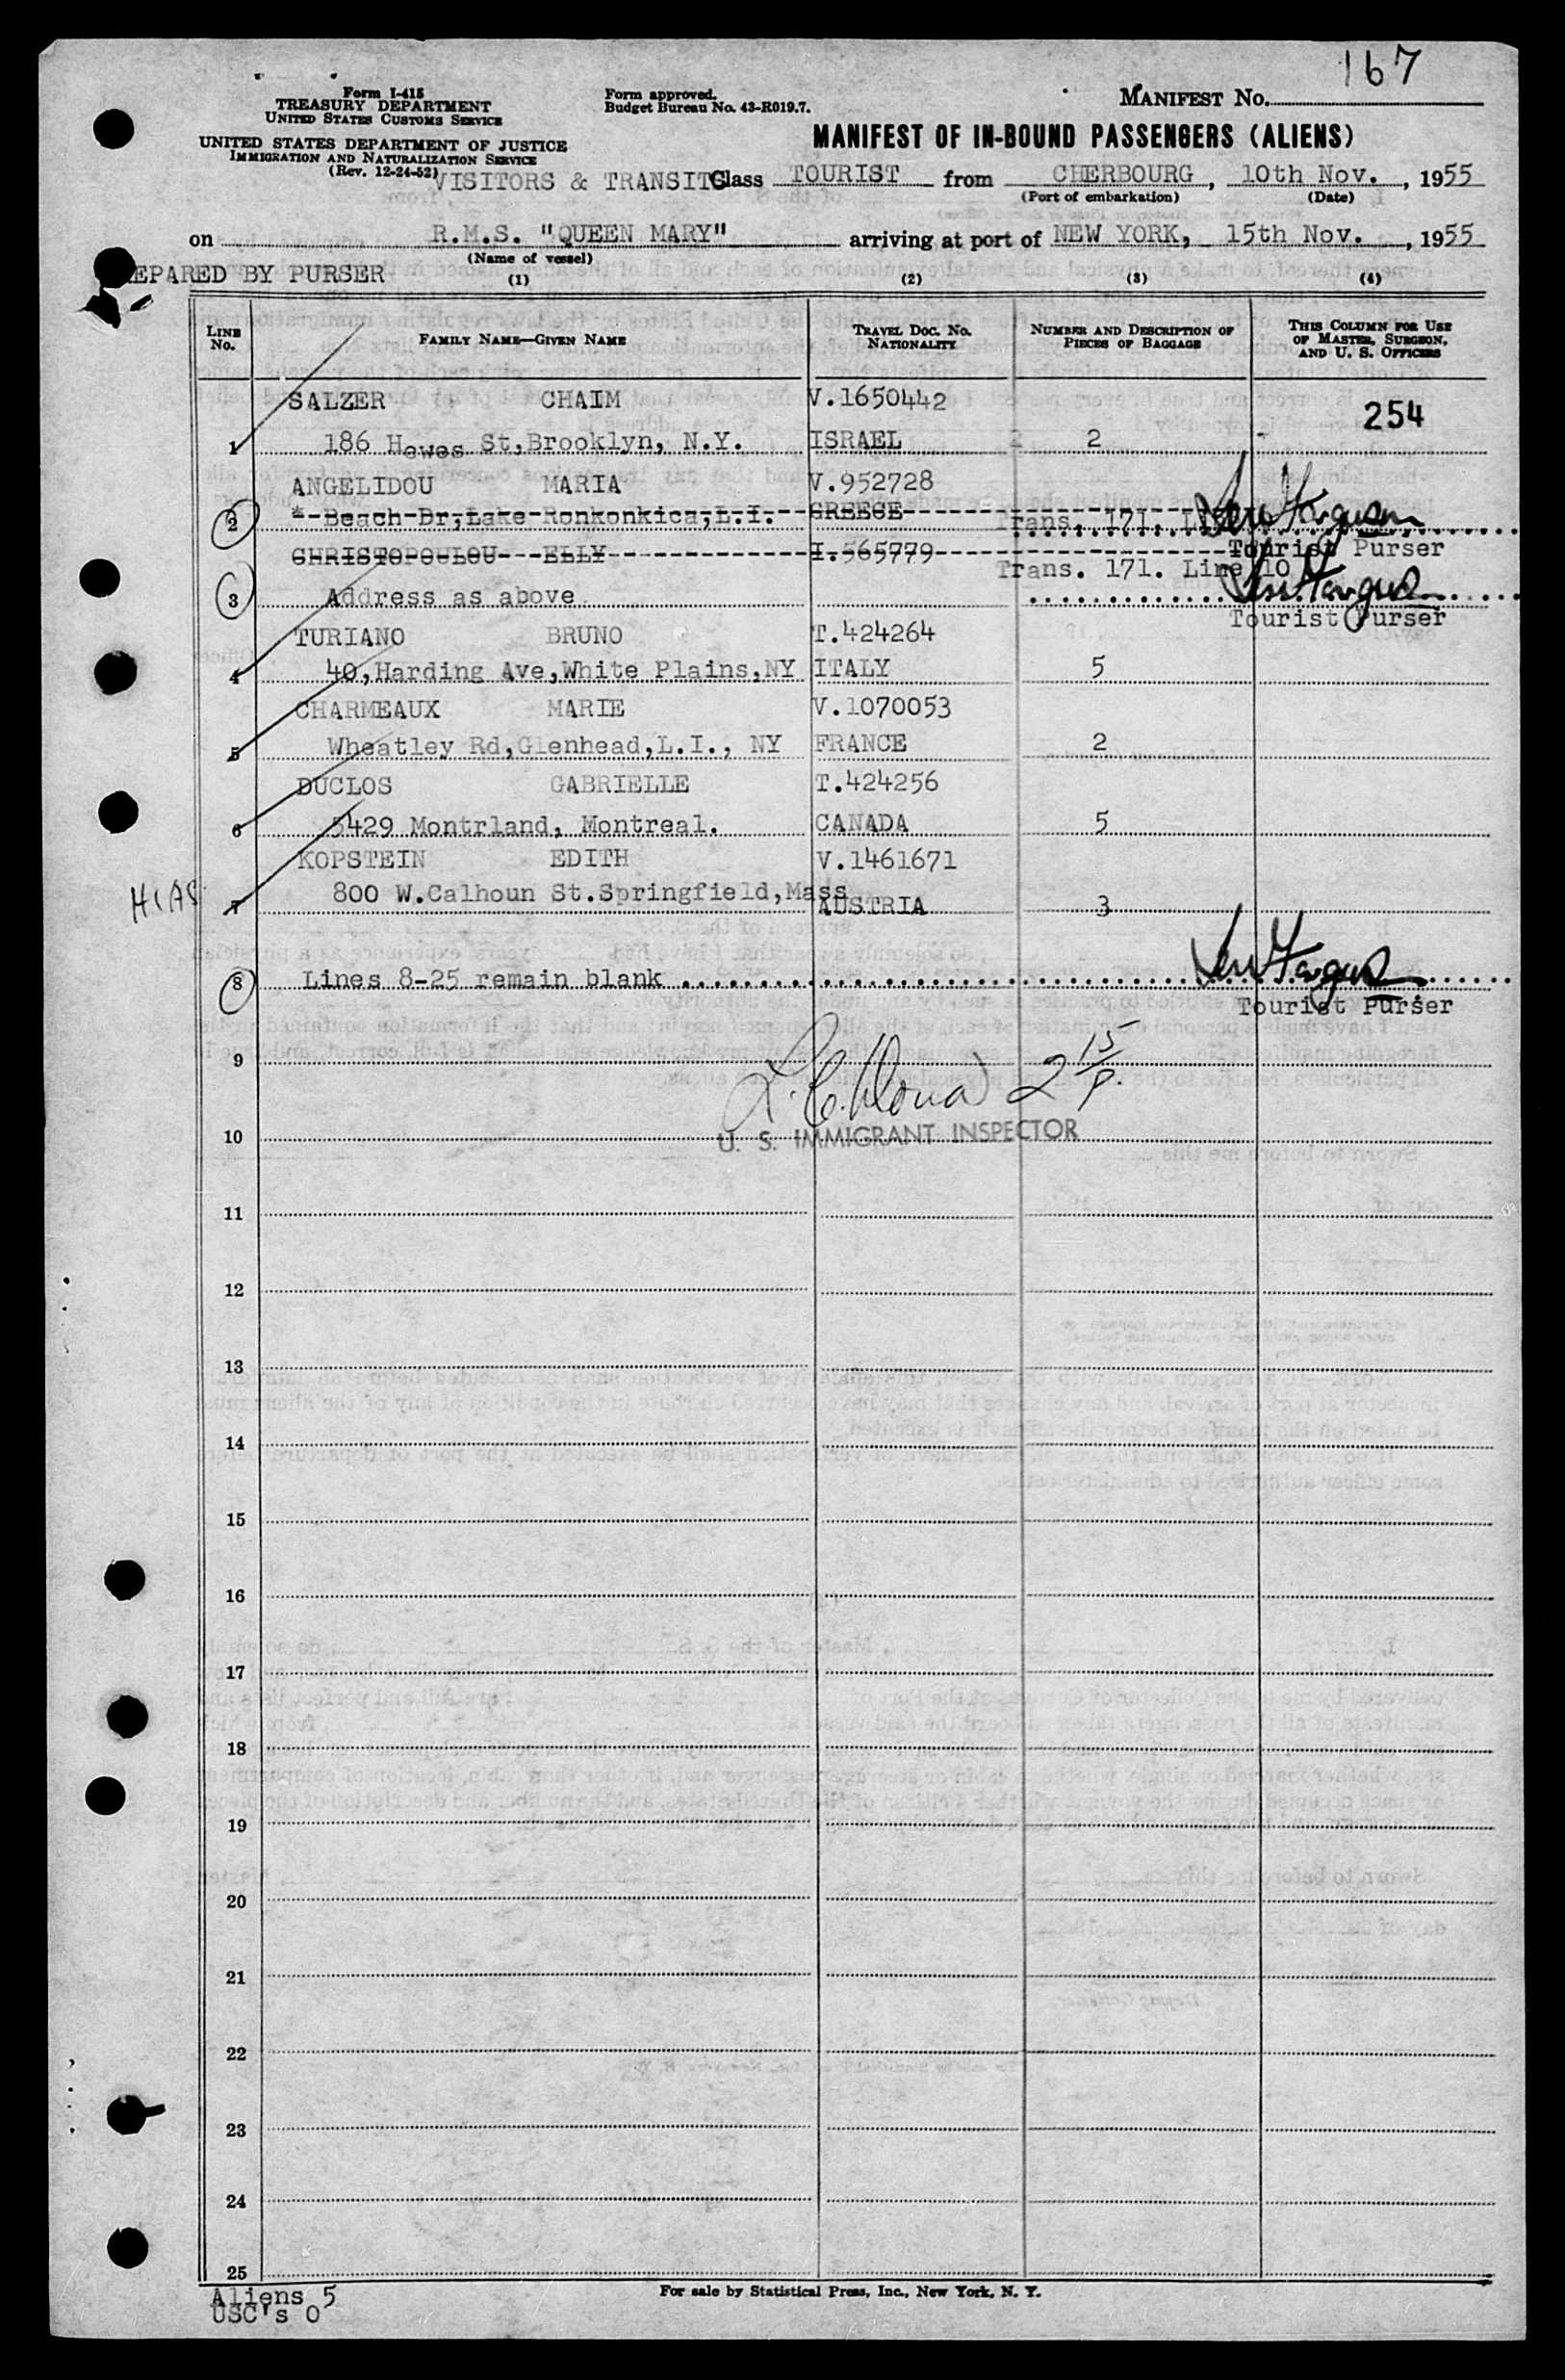 167
Form I-415
TREASURY DEPARTMENT
UNITED STATES CUSTOMS SERVICE
UNITED STATES DEPARTMENT OF JUSTICE
IMMIGRATION AND NATURALIZATION SERVICE
(Rev. 12-24-52)
Form approved.
Budget Bureau No. 43-R019.7.
MANIFEST No.
MANIFEST OF IN-BOUND PASSENGERS (ALIENS)
VISITORS & TRANSITS Class TOURIST from CHERBOURG, 10th Nov., 1955
(Port of embarkation) (Date)
on R.M.S. "QUEEN MARY" arriving at port of NEW YORK, 15th Nov., 1955
(Name of vessel)
EPARED BY PURSER (1) (2) (3) (4)
LINE No. FAMILY NAME—GIVEN NAME TRAVEL DOC. NO. NATIONALITY NUMBER AND DESCRIPTION OF PIECES OF BAGGAGE THIS COLUMN FOR USE OF MASTER, SURGEON, AND U. S. OFFICERS
SALZER CHAIM V.1650442 254
1 186 Hewes St,Brooklyn, N.Y. ISRAEL 2
ANGELIDOU MARIA V.952728
2 *--Beach-Dr,Lake-Ronkonkica,L.I. GREECE Trans. 171.
CHRISTOPOULOU ELLY I.565779 Tourist Purser
Trans. 171. Line 10
3 Address as above
Tourist Purser
TURIANO BRUNO T.424264
4 40,Harding Ave,White Plains,NY ITALY 5
CHARMEAUX MARIE V.1070053
5 Wheatley Rd,Glenhead,L.I., NY FRANCE 2
DUCLOS GABRIELLE T.424256
6 5429 Montrland, Montreal. CANADA 5
KOPSTEIN EDITH V.1461671
HIAS 7 800 W.Calhoun St.Springfield,Mass AUSTRIA 3
8 Lines 8-25 remain blank
Tourist Purser
9 2 15/P.
10 U. S. IMMIGRANT INSPECTOR
11
12
13
14
15
16
17
18
19
20
21
22
23
24
25
Aliens 5
USC's 0
For sale by Statistical Press, Inc., New York, N. Y.